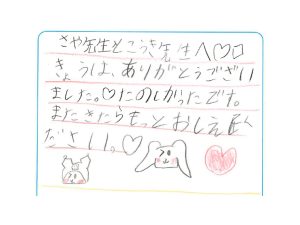 さや先生とこうき先生へ♡ロ
きょうは、ありがとうござい
ました。♡たのしかったです。
またきたらもっとおしえてく
ださい。♡